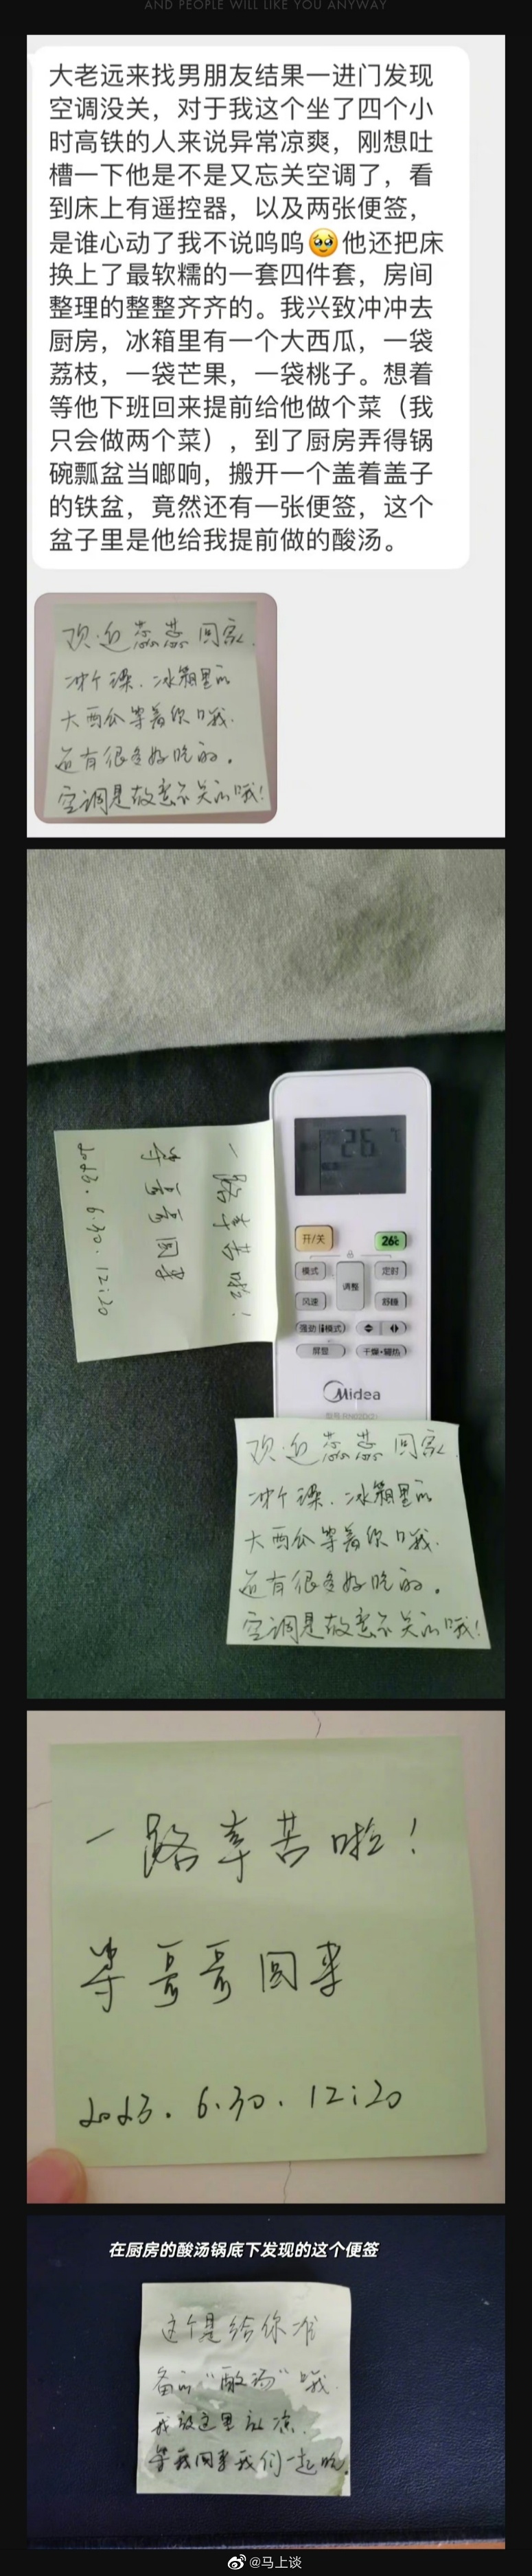 AND PEOPLE WILL LIKE YOU ANYWAY
大老远来找男朋友结果一进门发现
空调没关，对于我这个坐了四个小
时高铁的人来说异常凉爽，刚想吐
槽一下他是不是又忘关空调了，看
到床上有遥控器，以及两张便签，
是谁心动了我不说呜呜🥹他还把床
换上了最软糯的一套四件套，房间
整理的整整齐齐的。我兴致冲冲去
厨房，冰箱里有一个大西瓜，一袋
荔枝，一袋芒果，一袋桃子。想着
等他下班回来提前给他做个菜（我
只会做两个菜），到了厨房弄得锅
碗瓢盆当啷响，搬开一个盖着盖子
的铁盆，竟然还有一张便签，这个
盆子里是他给我提前做的酸汤。
欢迎蕊蕊回家.
冲个澡.冰箱里的
大西瓜等着你哦.
还有很多好吃的。
空调是故意不关的哦!
一路辛苦啦!
等哥哥回来
2023.6.30.12:20
26
℃
开/关
26℃
模式
调整
定时
风速
舒睡
屏显
干燥•辅热
Midea
欢迎蕊蕊回家
冲个澡.冰箱里的
大西瓜等着你哦.
还有很多好吃的。
空调是故意不关的哦!
一路辛苦啦!
等哥哥回来
2023.6.30.12:20
在厨房的酸汤锅底下发现的这个便签
这个是给你准
备的“酸汤”哦.
我放这里放凉.
等我回来我们一起吃.
@马上谈